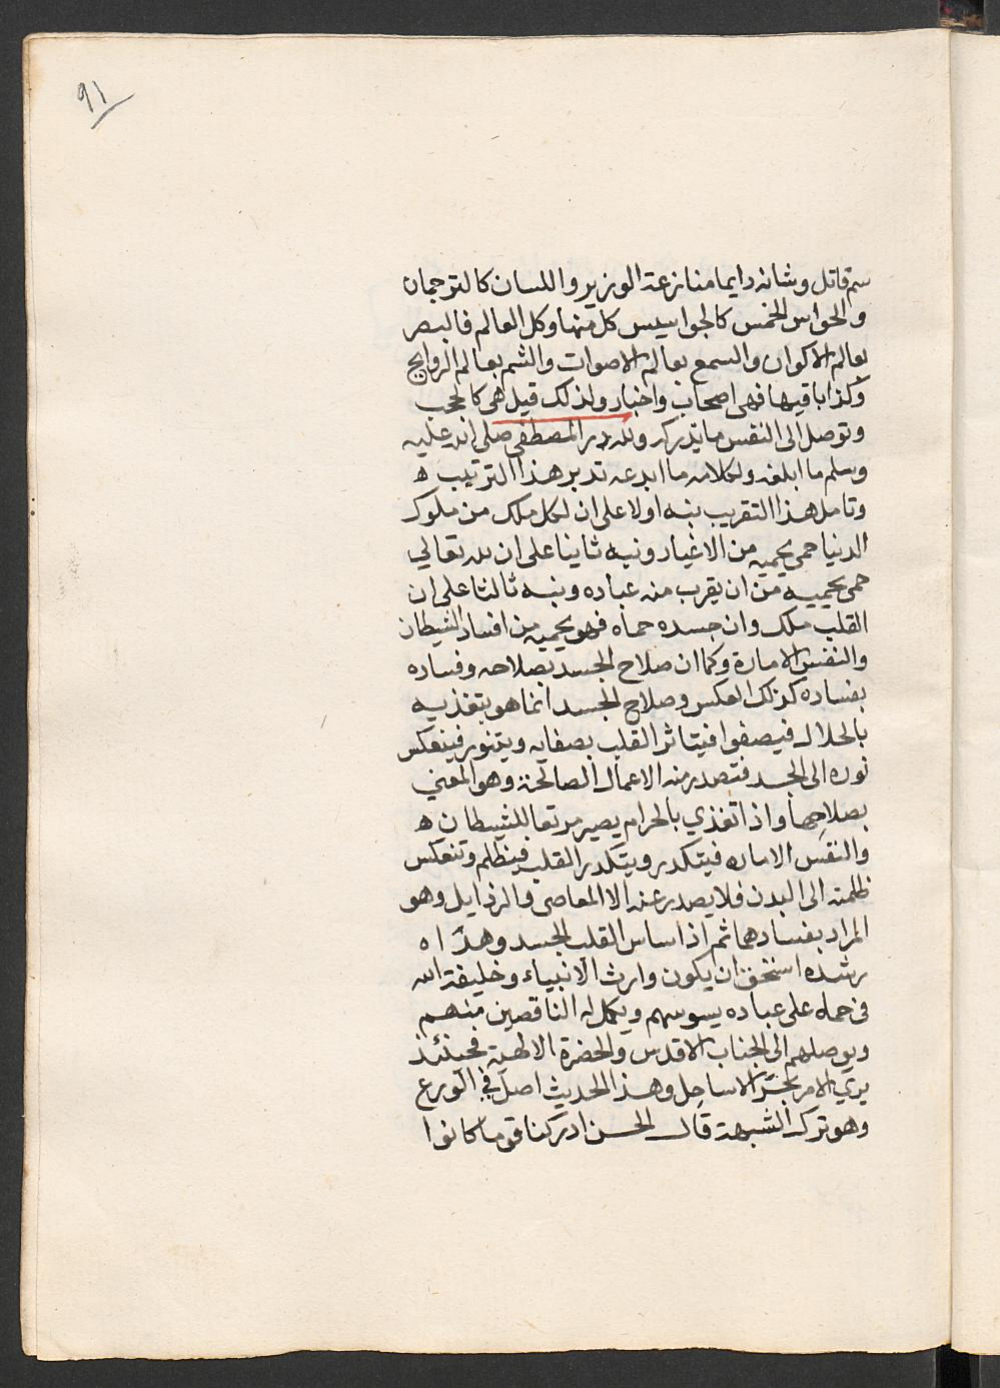 91
سم قاتل وشانه دايما منازعة الوزير واللسان كالترجمان
والحواس الخمس كالجواسيس كل منها وكل العالم فالبصر
بعالم الاكوان والسمع بعالم الاصوات والشم بعالم الروايح
وكذا باقيها فهى اصحاب واخبار ولذلك قيل هى كالحجب
وتوصل الى النفس ما يدرك ولله در المصطفى صلى الله عليه
وسلم ما ابلغه ولكلامه ما ابدعه تدبر هذا الترتيب ه
وتامل هذا التقريب بنبه اولا على ان لكل ملك من ملوك
الدنيا حمى يحميه من الاغيار ونبه ثانيا على ان لله تعالي
حمى يحميه من ان يقرب منه عباده ونبه ثالثا على ان
القلب ملك وان جسده حماه فهو يحميه من افساد الشيطان
والنفس الامارة وكما ان صلاح الجسد بصلاحه وفساده
بفساده كذلك العكس وصلاح الجسد انما هو بتغذيه
بالحلال فيصفوا فيتاثر القلب بصفايه ويتنور فينعكس
نوره الى الجسد فتصدر منه الاعمال الصالحة وهو المعني
بصلاحها واذا تغذي بالحرام يصير مرتعا للشيطان ه
والنفس الاماره فيتكدر ويتكدر القلب فيظلم وتنعكس
ظلمته الى البدن فلا يصدر عنه الا المعاصى والرذايل وهو
المراد بفسادهما ثم اذا ساس القلب الجسد وهداه
رشده استحق ان يكون وارث الانبياء وخليفة الله
فى حماه على عباده يسوسهم ويكمل له الناقصين منهم
ويوصلهم الى الجناب الاقدس والحضرة الالهية فحينئذ
يرى الامر بحرا لا ساحل وهذا الحديث اصل في الورع
وهو ترك الشبهة قال الحسن ادركنا قوما كانوا